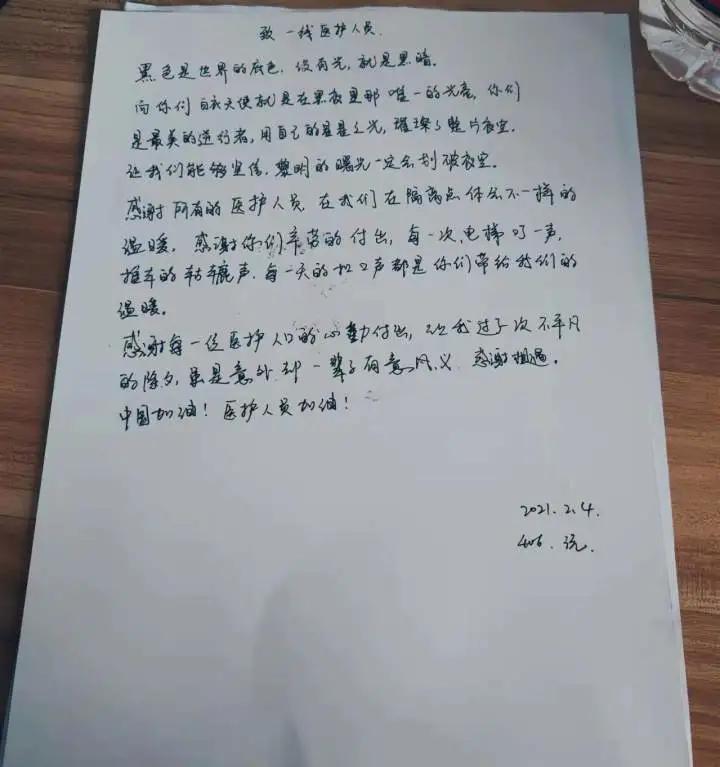 致一线医护人员.
黑色是世界的底色,没有光,就是黑暗。
而你们白衣天使就是在黑夜里那唯一的光亮,你们
是最美的逆行者,用自己的星星之光,璀璨了整片夜空.
让我们能够坚信,黎明的曙光一定会划破夜空。
感谢所有的医护人员,在我们在隔离点体会不一样的
温暖。感谢你们辛苦的付出,每一次电梯叮一声,
推车的轱辘声,每一天的扣门声都是你们带给我们的
温暖。
感谢每一位医护人员的辛勤付出,让我过了次不平凡
的除夕,虽是意外却一辈子有意义.感谢相遇。
中国加油!医护人员加油!
2021.2.4.
406.